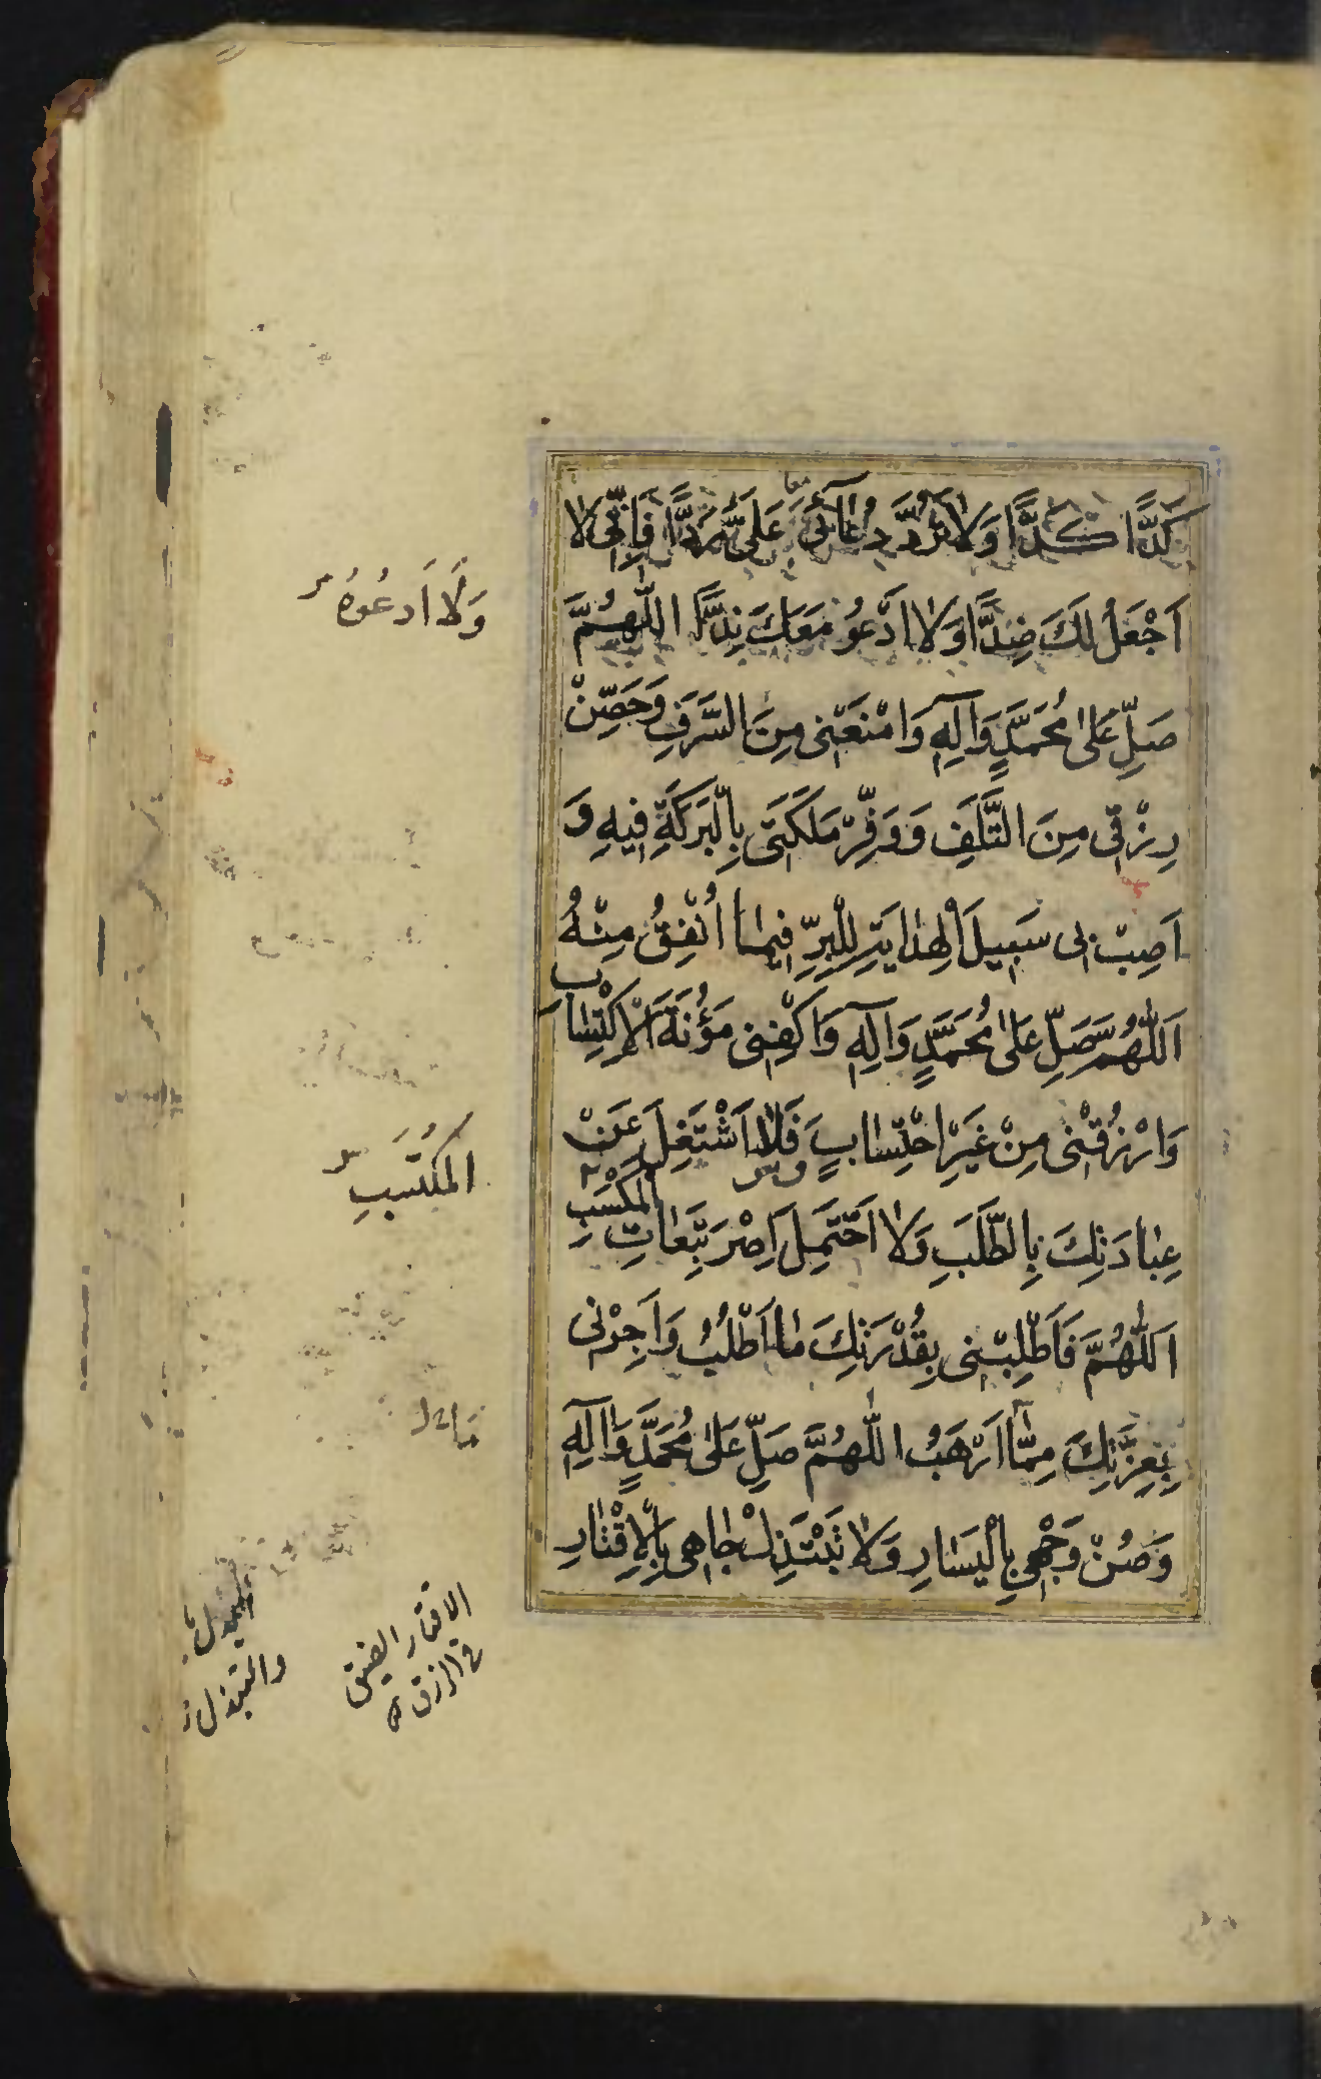 كَدًّا كَدًّا وَلَا تَرُدَّ دُعَآئى عَلَىَّ رَدًّا فَاِنّى لا
اَجْعَلُ لَكَ ضِدًّا وَلا اَدْعُو مَعَكَ نِدًّا اَللّهُمَّ
صَلِّ عَلى مُحَمَّدٍ وَآلِهِ وَامْنَعْنى مِنَ السَّرَفِ وَحَصِّنْ
رِزْقى مِنَ التَّلَفِ وَوَفِّرْ مَلَكَتى بِالْبَرَكَةِ فيهِ وَ
اَصِبْ بى سَبيلَ الْهِدايَةِ لِلْبِرِّ فيما اُنْفِقُ مِنْهُ
اَللّهُمَّ صَلِّ عَلى مُحَمَّدٍ وَآلِهِ وَاكْفِنى مَؤُنَةَ الْاِكْتِسابِ
وَارْزُقْنى مِنْ غَيْرِ احْتِسابٍ فَلا اَشْتَغِلَ عَنْ
عِبادَتِكَ بِالطَّلَبِ وَلا اَحْتَمِلَ اِصْرَ تَبِعاتِ الْمَكْسَبِ
اَللّهُمَّ فَاَطْلِبْنى بِقُدْرَتِكَ ما اَطْلُبُ وَاَجِرْنى
بِعِزَّتِكَ مِمّا اَرْهَبُ اللّهُمَّ صَلِّ عَلى مُحَمَّدٍ وَآلِهِ
وَصُنْ وَجْهى بِالْيَسارِ وَلا تَبْتَذِلْ جاهى بِالْاِقْتارِ
وَلَا اَدعُوهُ
المُكتَسَبِ
الاقتار الضيق
فى الرزق